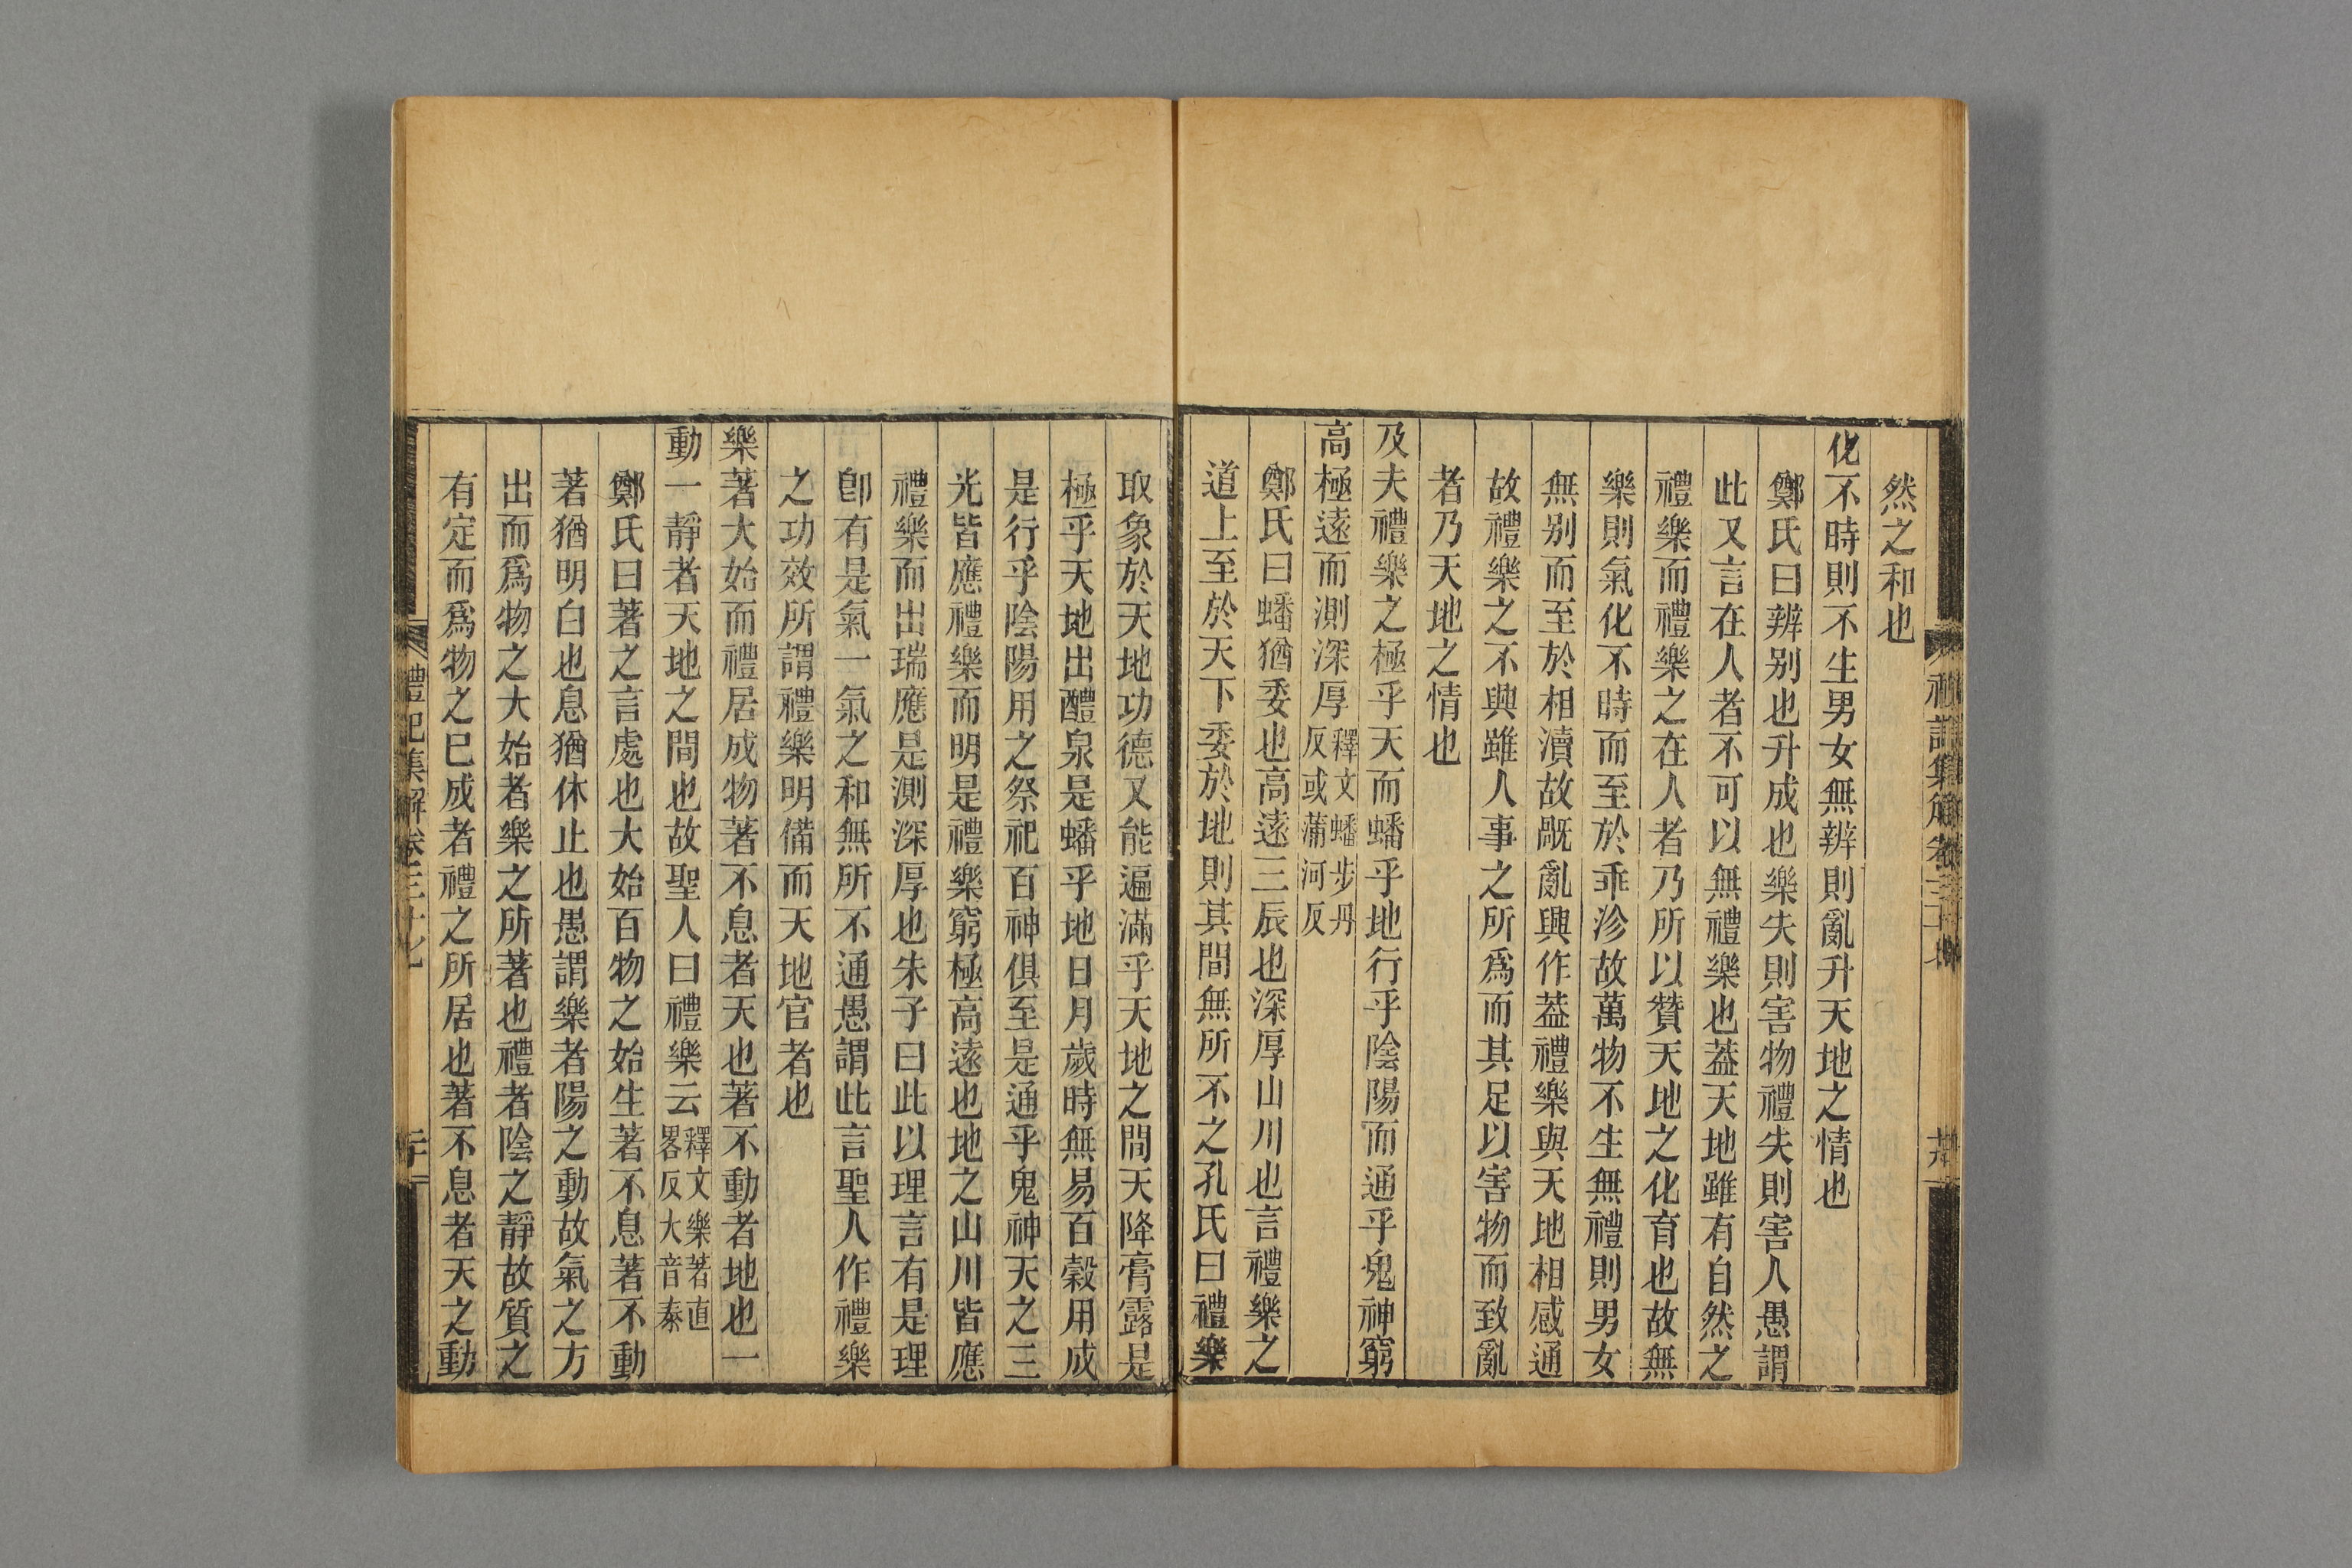 然之和也
化不時則不生男女無辨則亂升天地之情也
鄭氏曰辨别也升成也樂失則害物禮失則害人愚謂
此又言在人者不可以無禮樂也葢天地雖有自然之
禮樂而禮樂之在人者乃所以贊天地之化育也故無
樂則氣化不時而至於乖沴故萬物不生無禮則男女
無别而至於相瀆故厩亂興作葢禮樂與天地相感通
故禮樂之不興雖人事之所爲而其足以害物而致亂
者乃天地之情也
及夫禮樂之極乎天而蟠乎地行乎陰陽而通乎鬼神窮
高極遠而測深厚釋文蟠步丹反或蒲河反
鄭氏曰蟠猶委也高遠三辰也深厚山川也言禮樂之
道上至於天下委於地則其間無所不之孔氏曰禮樂
取象於天地功德又能遍滿乎天地之間天降膏露是
極乎天地出醴泉是蟠乎地日月歲時無易百穀用成
是行乎陰陽用之祭祀百神俱至是通乎鬼神天之三
光皆應禮樂而明是禮樂窮極高遠也地之山川皆應
禮樂而出瑞應是測深厚也朱子曰此以理言有是理
卽有是氣一氣之和無所不通愚謂此言聖人作禮樂
之功效所謂禮樂明備而天地官者也
樂著大始而禮居成物著不息者天也著不動者地也一
動一靜者天地之間也故聖人曰禮樂云釋文樂著直畧反大音泰
鄭氏曰著之言處也大始百物之始生著不息著不動
著猶明白也息猶休止也愚謂樂者陽之動故氣之方
出而爲物之大始者樂之所著也禮者陰之靜故質之
有定而爲物之已成者禮之所居也著不息者天之動
禮記集解卷三十七